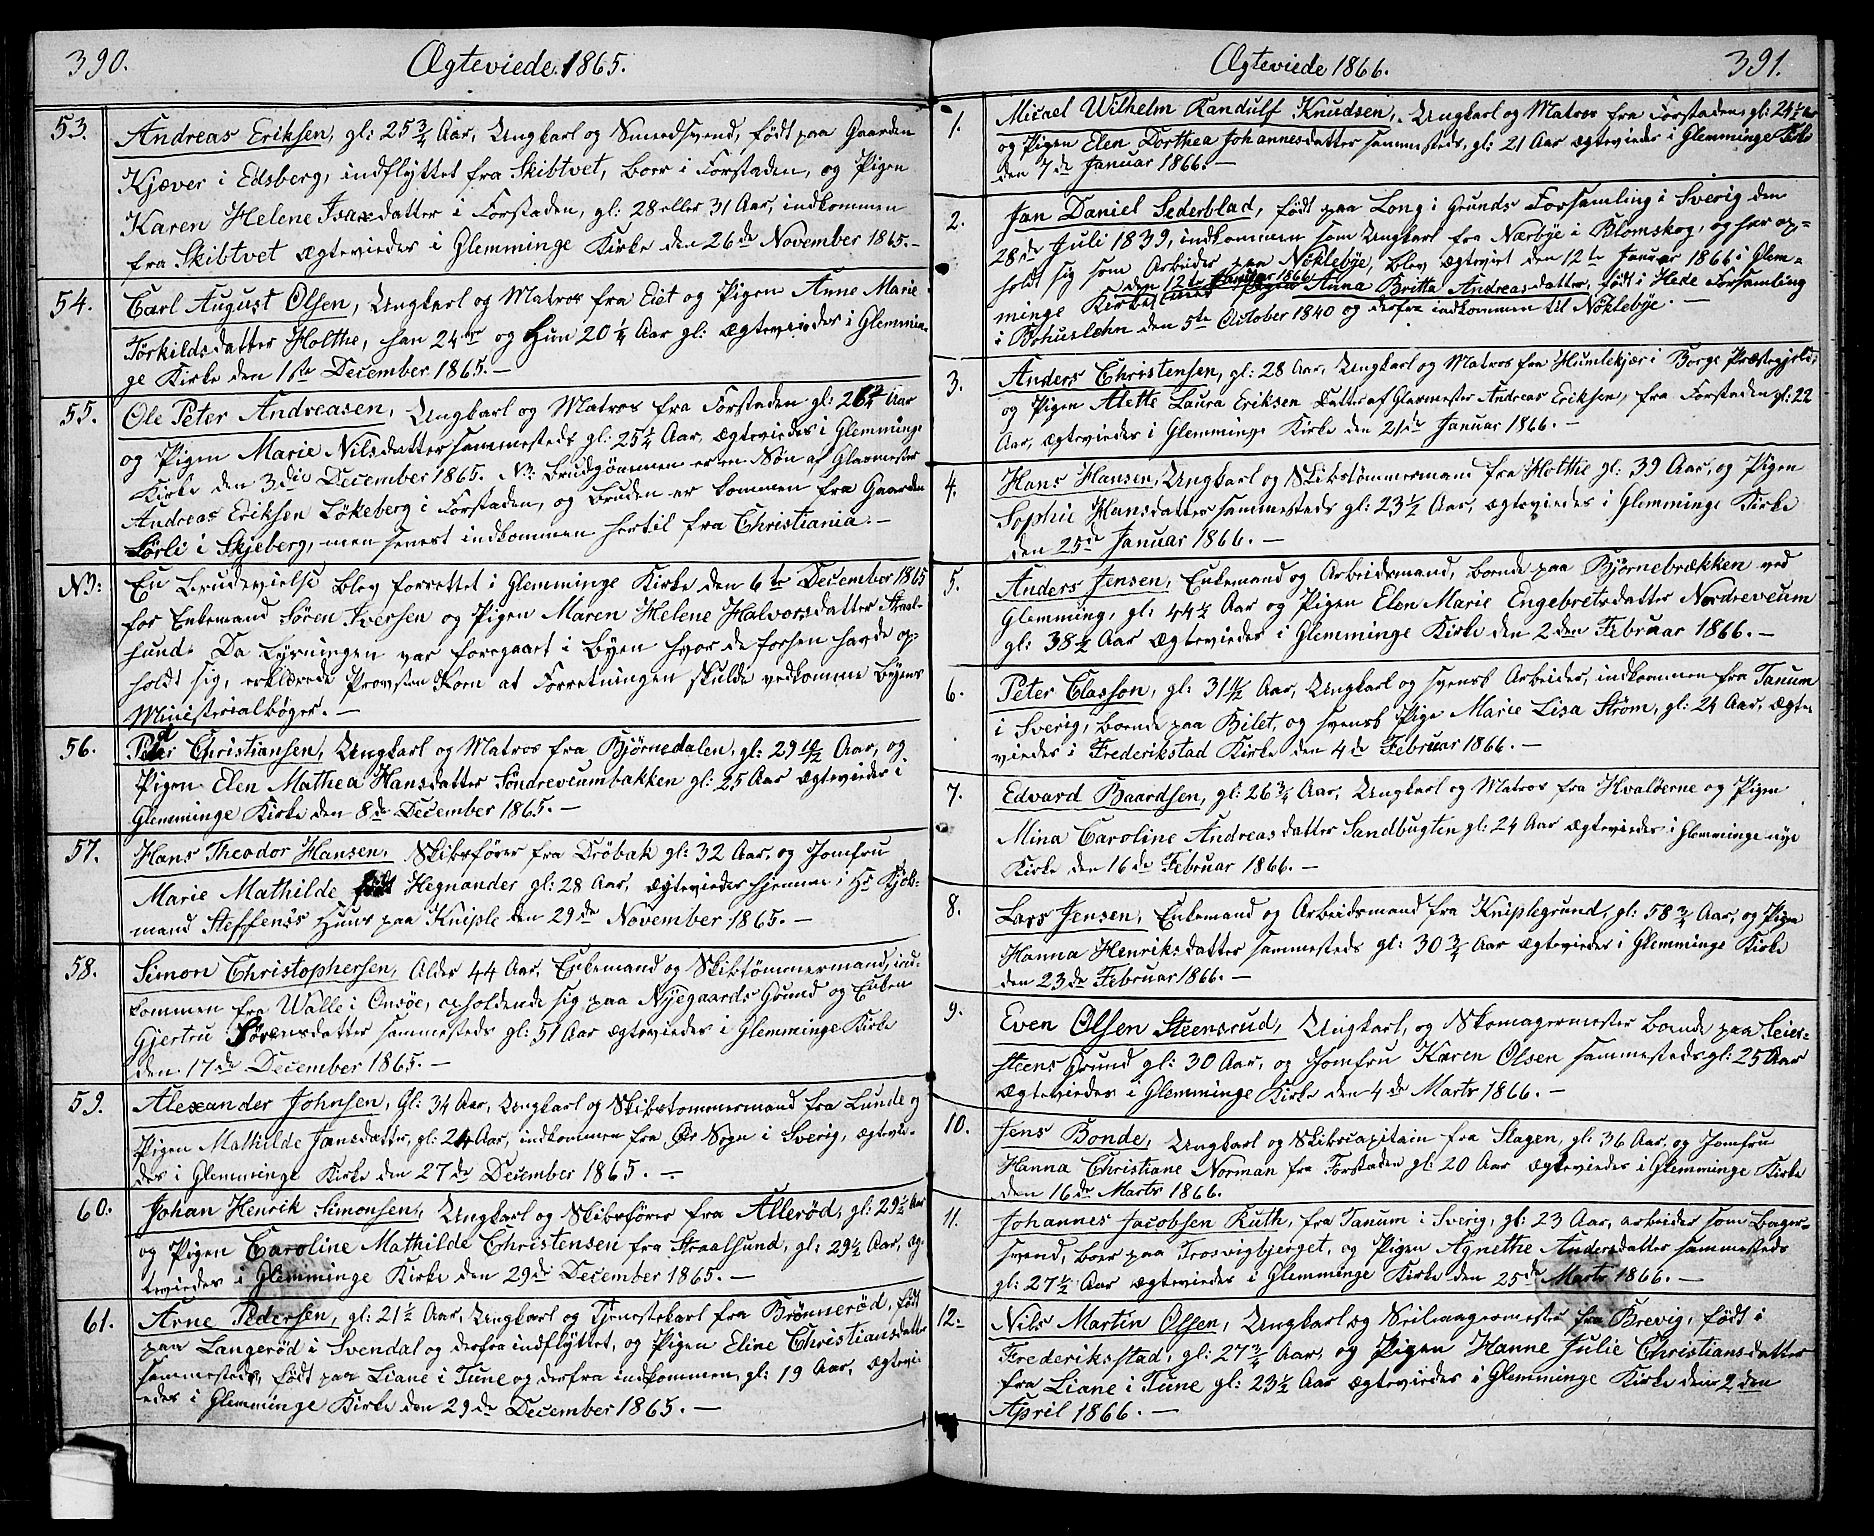 390.
Ægteviede 1865.
53. Andreas Eriksen, gl: 25 3/4 Aar, Ungkarl og Smedsvend, født paa Gaarden
Kjæver i Edsberg, indflyttet fra Skibtvet, boer i Forstaden, og Pigen
Karen Helene Isaxdatter i Forstaden, gl: 28 eller 31 Aar, indkommen
fra Skibtvet ægtevieder i Glemminge Kirke den 26de November 1865.-
54. Carl August Olsen, Ungkarl og Matros fra Eiet og Pigen Anne Marie
Törkildsdatter Holthe, han 24 og Hun 20 1/4 Aar gl: ægtevieder i Glemmin-
ge Kirke den 1ste December 1865.-
55. Ole Peter Andreasen, Ungkarl og Matros fra Forstaden gl: Aar
og Pigen Marie Nilsdatter sammesteds gl: 25 1/4 Aar, ægtevieder i Glemminge
Kirke den 3die December 1865. NB: Brudgommen er en Søn af Glarmester
Andreas Eriksen Lökeberg i Forstaden, og Bruden er kommen fra Gaarden
Sörli i Skjeberg, men senest indkommen hertil fra Christiania.-
NB: En Brudevielse blev forrettet i Glemminge Kirke den 6te December 1865
for Enkemand Sören Iversen og Pigen Maren Helene Halvorsdatter Straal-
sund. Da Lysningen var foregaaet i Byen hvor de forhen havde op-
holdt sig, erklærede Provsten Korn at Forretningen skulde vedkomme Byens
Ministerialbøger.-
56. Peter Christiansen, Ungkarl og Matros fra Bjørnedalen, gl: 29 Aar, og
Pigen Elen Mathea Hansdatter Söndreveumbakken gl: 25 Aar ægtevieder i
Glemminge Kirke den 8de December 1865.-
57. Hans Theodor Hansen, Skibsfører fra Dröbak gl: 32 Aar, og Jomfru
Marie Mathilde født Hegnander gl: 28 Aar, ægtevieder hjemme i Hr Kjöb-
mand Steffens Huus paa Kniple den 29de November 1865.-
58. Simon Christophersen, Alder 44 Aar, Enkemand og Skibstømmermand, ind-
kommen fra Walle i Onsøe, opholdende sig paa Nygaards Grund og Enken
Gjertru Sörensdatter sammesteds gl: 51 Aar ægtevieder i Glemminge Kirke
den 17de December 1865.-
59. Alexander Johnsen, Gl: 34 Aar, Ungkarl og Skibstømmermand fra Lunde og
Pigen Mathilde Jansdatter, gl: 24 Aar, indkommen fra Ör Sogn i Sverig, ægtevie-
des i Glemminge Kirke den 27de December 1865.-
60. Johan Henrik Simonsen, Ungkarl og Skibsfører fra Allerød, gl: 29 1/2 Aar
og Pigen Caroline Mathilde Christensen fra Straalsund, gl: 29 1/2 Aar, æg-
tevieder i Glemminge Kirke den 29de December 1865.-
61. Arne Pedersen, gl: 21 1/2 Aar, Ungkarl og Tjenestekarl fra Brønnerød, født
paa Langerød i Svendal og derfra indflyttet, og Pigen Eline Christiansdatter
sammesteds, født paa Liane i Tune og derfra indkommen, gl: 19 Aar, ægtevi-
edes i Glemminge Kirke den 29de December 1865.-
391.
Ægteviede 1866.
1. Micael Wilhelm Randulf Knudsen, Ungkarl og Matros fra Forstaden, gl: 24 1/2 Aar
og Pigen Elen Dorthea Johannesdatter sammesteds, gl: 21 Aar ægtevieder i Glemminge Kirke
den 7de Januar 1866.-
2. Jan Daniel Sederblad, født paa Long i Grunds Forsamling i Sverig den
28de Juli 1839, indkommen som Ungkarl fra Nærbye i Blomskog, og har op-
holdt sig som Arbeider paa Nöklebye, blev ægteviet den 12te Januar 1866 i Glem-
den 12te Januar 1866
minge Kirke med Pigen Anna Britta Andreasdatter, født i Hede Forsamling
i Bohuslehn den 5te October 1840 og derfra indkommen til Nöklebye.-
3. Anders Christensen, gl: 28 Aar, Ungkarl og Matros fra Humlekjær i Borge Præstegjeld,
og Pigen Alette Laura Eriksen Datter af Glarmester Andreas Eriksen, fra Forstaden gl: 22
Aar, ægtevieder i Glemminge Kirke den 21de Januar 1866.-
4. Hans Hansen, Ungkarl og Skibstömmermand fra Holthe gl: 39 Aar, og Pigen
Sophie Hansdatter sammesteds gl: 23 1/2 Aar, ægtevieder i Glemminge Kirke
den 25de Januar 1866.-
5. Anders Jensen, Enkemand og Arbeidsmand, boende paa Bjørnebrækken ved
Glemming, gl: 44 1/2 Aar og Pigen Elen Marie Engebretsdatter Nordreveum
gl: 38 1/2 Aar ægtevieder i Glemminge Kirke den 2den Februar 1866.-
6. Peter Classon, gl: 31 Aar, Ungkarl og svensk Arbeider, indkommen fra Tanum
i Sverig, boende paa Bilet, og svensk Pige Marie Lisa Ström, gl: 24 Aar, ægte-
vieder i Frederikstad Kirke den 4de Februar 1866.-
7. Edvard Baardsen, gl: 26 3/4 Aar, Ungkarl og Matros fra Hvaløerne og Pigen
Mina Caroline Andreasdatter Sandbugten gl: 24 Aar ægtevieder i Glemminge nye
Kirke den 16de Februar 1866.-
8. Lars Jensen, Enkemand og Arbeidsmand fra Kniplegrund, gl: 58 3/4 Aar, og Pigen
Hanna Henriksdatter sammesteds gl: 30 3/4 Aar ægtevieder i Glemminge Kirke
den 23de Februar 1866.-
9. Even Olsen Steensrud, Ungkarl, og Skomagermester boende paa Leier-
steens Grund gl: 30 Aar, og Jomfru Karen Olsen sammesteds gl: 25 Aar
ægtevieder i Glemminge Kirke den 4de Marts 1866.-
10. Jens Bonde, Ungkarl og Skibscapitain fra Slagen, gl: 36 Aar, og Jomfru
Hanna Christiane Norman fra Forstaden gl: 20 Aar ægtevieder i Glemminge Kirke
den 16de Marts 1866.
11. Johannes Jacobsen Ruth, fra Tanum i Sverig, gl: 23 Aar, arbeider som Bager-
svend, boer paa Trosvigbjerget, og Pigen Agnethe Andersdatter sammesteds
gl: 27 1/2 Aar ægtevieder i Glemminge Kirke den 25de Marts 1866.-
12. Nils Martin Olsen, Ungkarl og Seilmagermester fra Brevig, født i
Frederiksstad, gl: 27 3/4 Aar, og Pigen Hanne Julie Christiansdatter
fra Liane i Tune gl: 23 1/2 Aar ægtevieder i Glemminge Kirke den 2den
April 1866.-